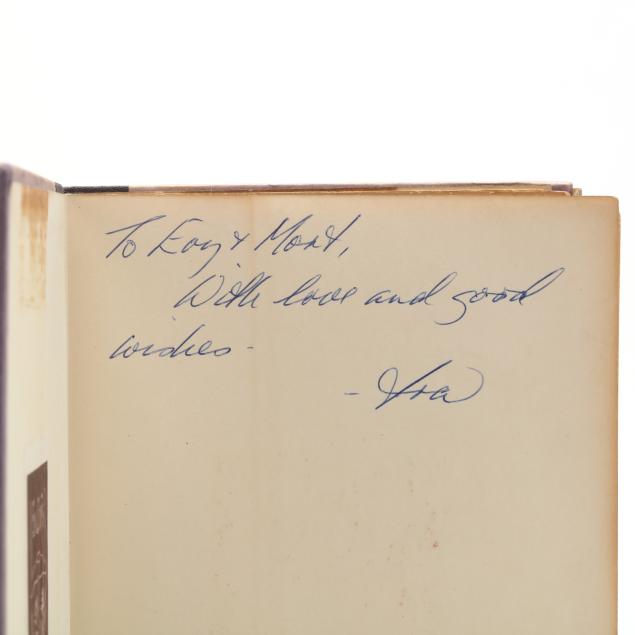 To Eoy & Mort,
With love and good
wishes -
- Ira